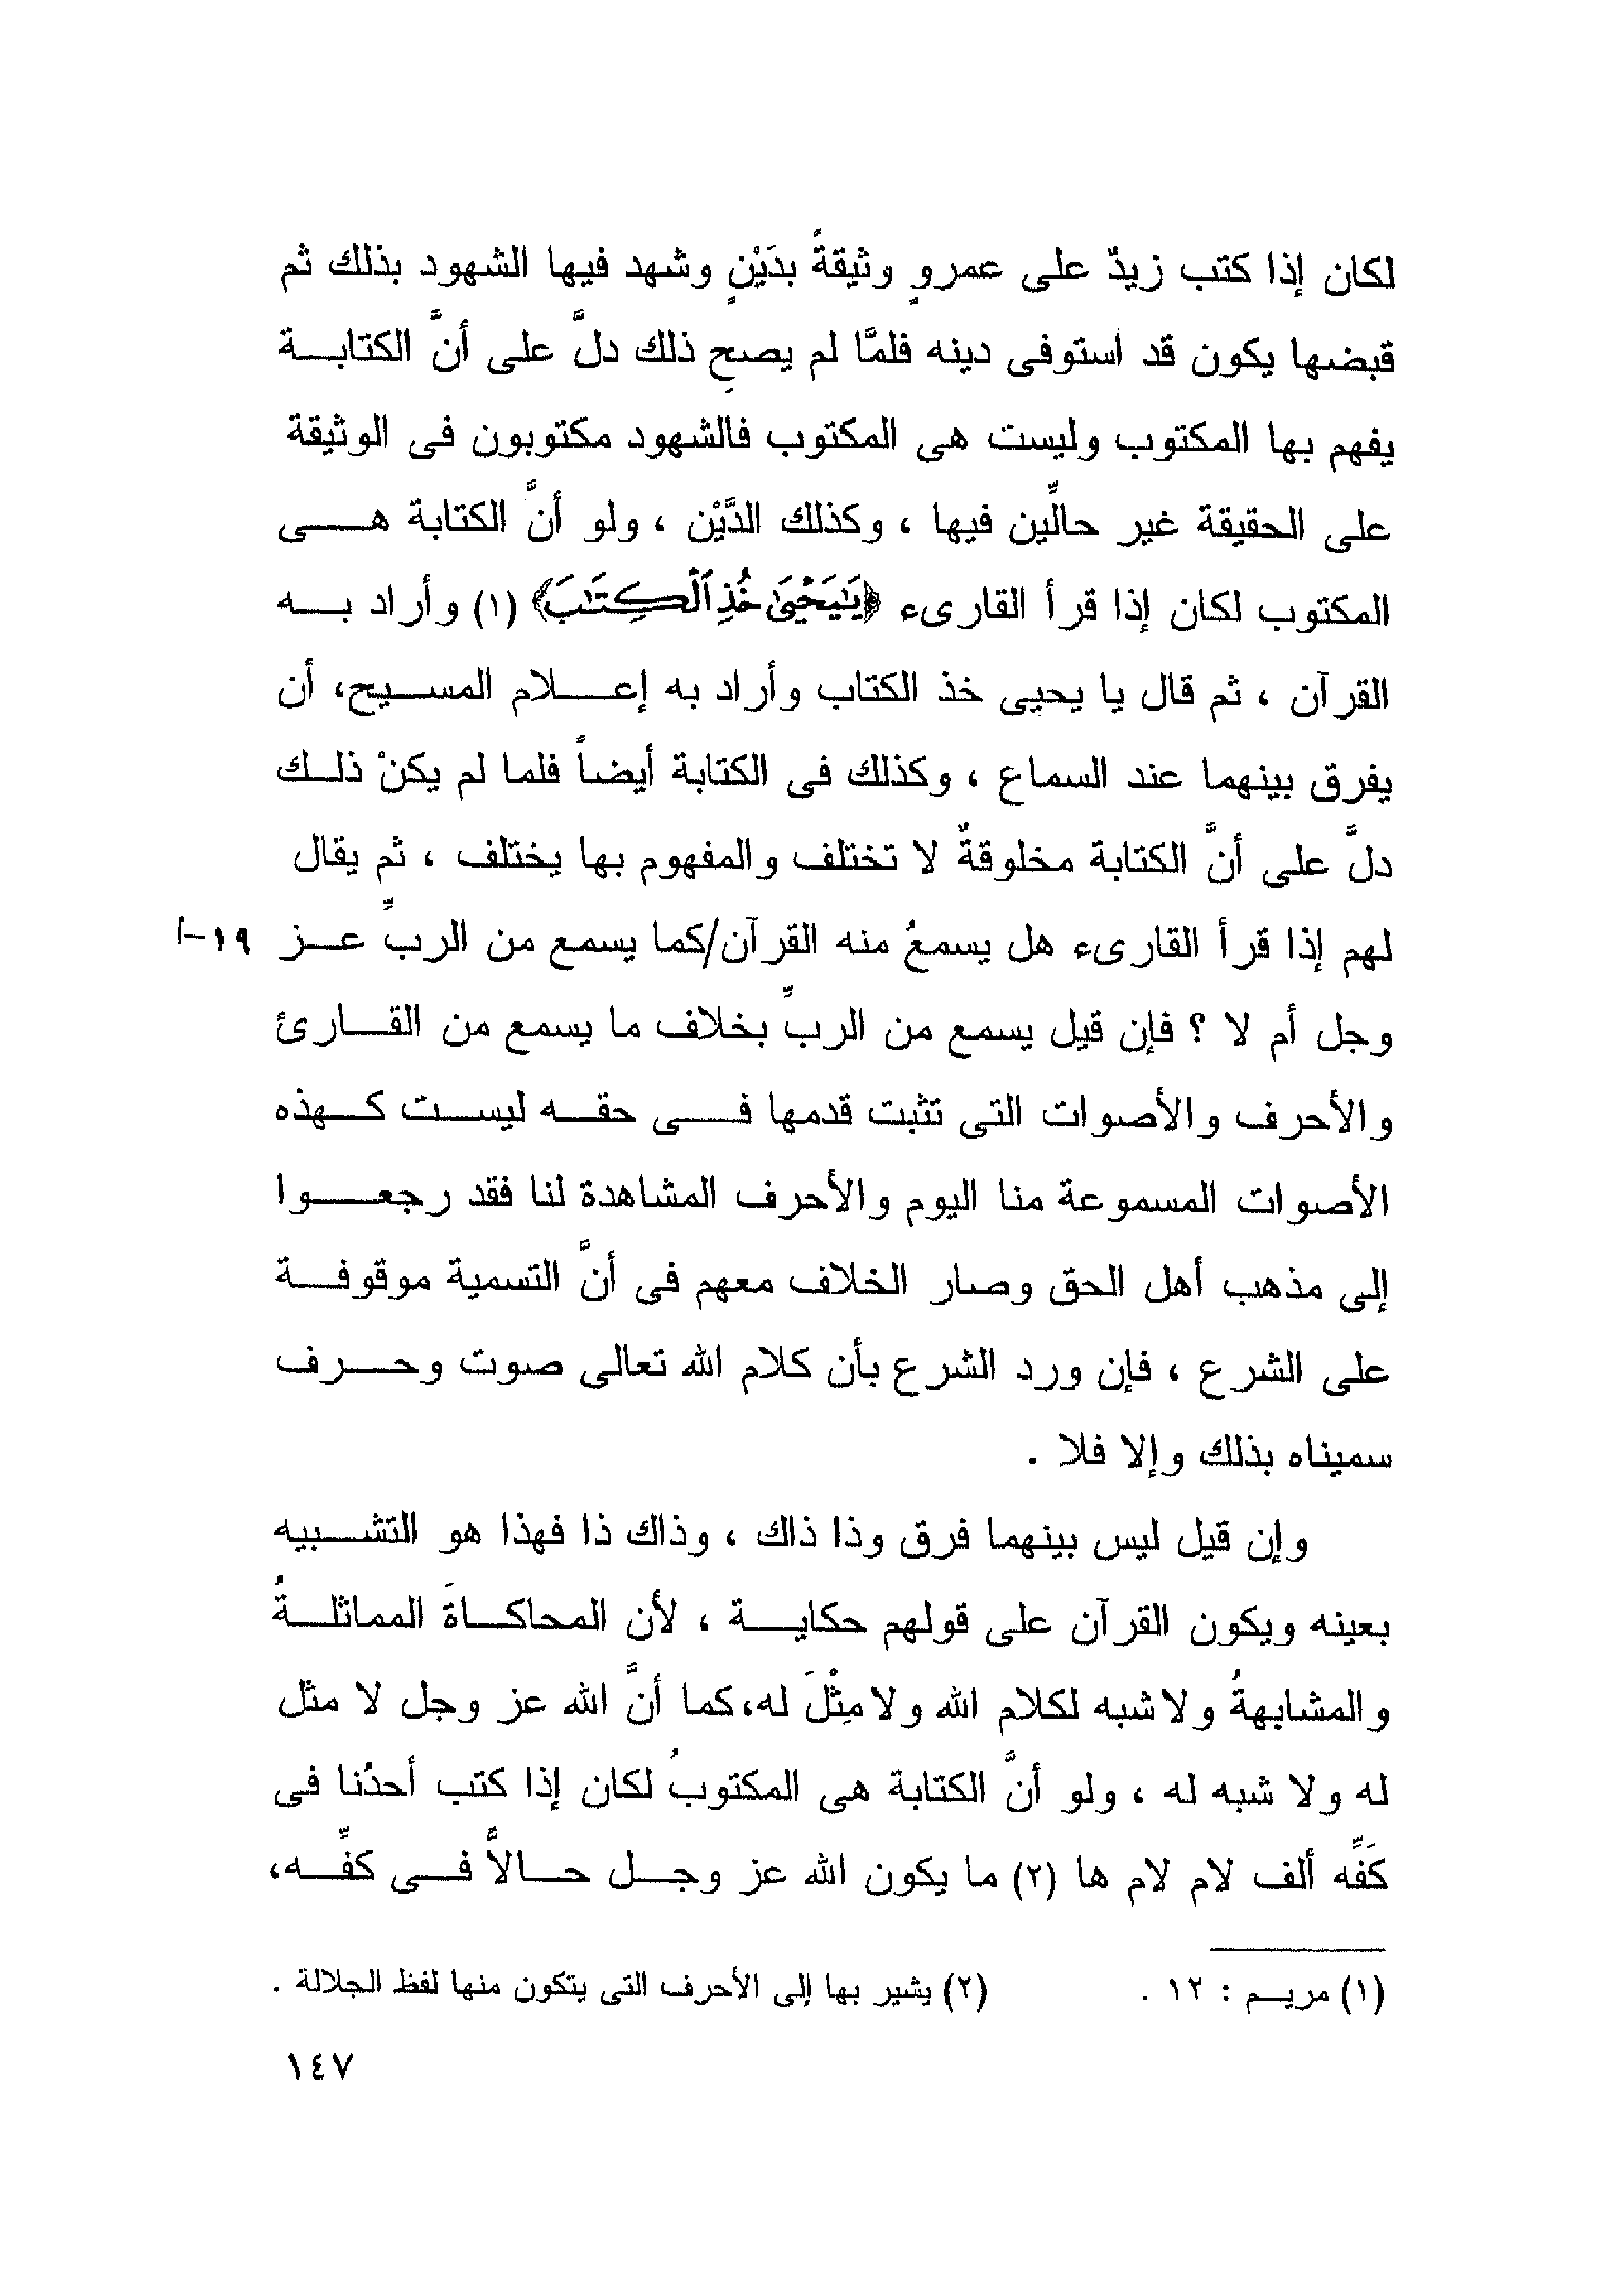 لكان إذا كتب زيدٌ على عمروٍ وثيقةً بدَيْنٍ وشهد فيها الشهود بذلك ثم
قبضها يكون قد استوفى دينه فلمَّا لم يصحِ ذلك دلَّ على أنَّ الكتابة
يفهم بها المكتوب وليست هى المكتوب فالشهود مكتوبون فى الوثيقة
على الحقيقة غير حالِّين فيها ، وكذلك الدَّيْن ، ولو أنَّ الكتابة هى
المكتوب لكان إذا قرأ القارىء ﴿يَٰيَحْيَىٰ خُذِ ٱلْكِتَٰبَ﴾ (١) وأراد به
القرآن ، ثم قال يا يحيى خذ الكتاب وأراد به إعلام المسيح، أن
يفرق بينهما عند السماع ، وكذلك فى الكتابة أيضاً فلما لم يكنْ ذلك
دلَّ على أنَّ الكتابة مخلوقةٌ لا تختلف والمفهوم بها يختلف ، ثم يقال
لهم إذا قرأ القارىء هل يسمعُ منه القرآن/كما يسمع من الربِّ عز ١٩-أ
وجل أم لا ؟ فإن قيل يسمع من الربِّ بخلاف ما يسمع من القارئ
والأحرف والأصوات التى تثبت قدمها فى حقه ليست كهذه
الأصوات المسموعة منا اليوم والأحرف المشاهدة لنا فقد رجعوا
إلى مذهب أهل الحق وصار الخلاف معهم فى أنَّ التسمية موقوفة
على الشرع ، فإن ورد الشرع بأن كلام الله تعالى صوت وحرف
سميناه بذلك وإلا فلا .
وإن قيل ليس بينهما فرق وذا ذاك ، وذاك ذا فهذا هو التشبيه
بعينه ويكون القرآن على قولهم حكاية ، لأن المحاكاةَ المماثلةُ
والمشابهةُ ولا شبه لكلام الله ولا مِثْلَ له،كما أنَّ الله عز وجل لا مثل
له ولا شبه له ، ولو أنَّ الكتابة هى المكتوبُ لكان إذا كتب أحدُنا فى
كَفِّه ألف لام لام ها (٢) ما يكون الله عز وجل حالاًّ فى كفِّه،
(١) مريم : ١٢ . (٢) يشير بها إلى الأحرف التى يتكون منها لفظ الجلالة .
١٤٧